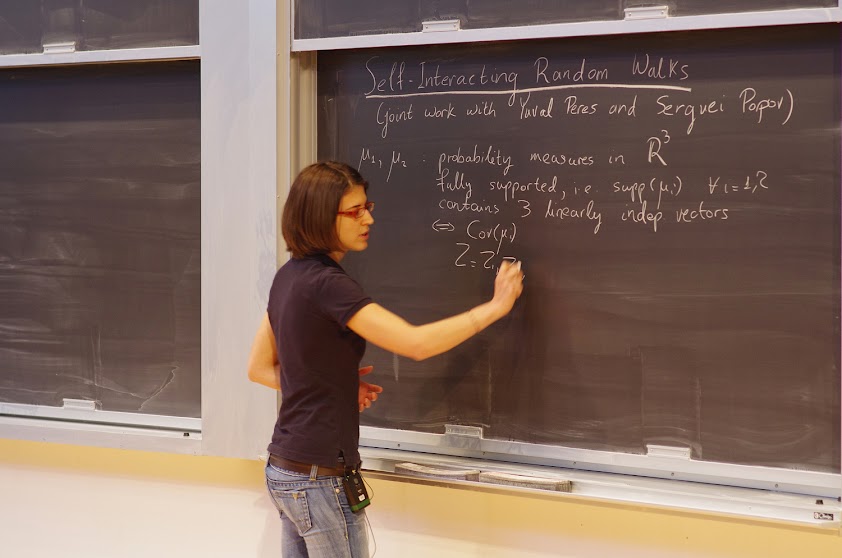 Self-Interacting Random Walks
(joint work with Yuval Peres and Serguei Popov)
μ₁, μ₂ : probability measures in ℝ³
fully supported, i.e. supp(μᵢ) ∀ i=1,2
contains 3 linearly indep vectors
⇔ Cov(μᵢ)
Z = Z₁